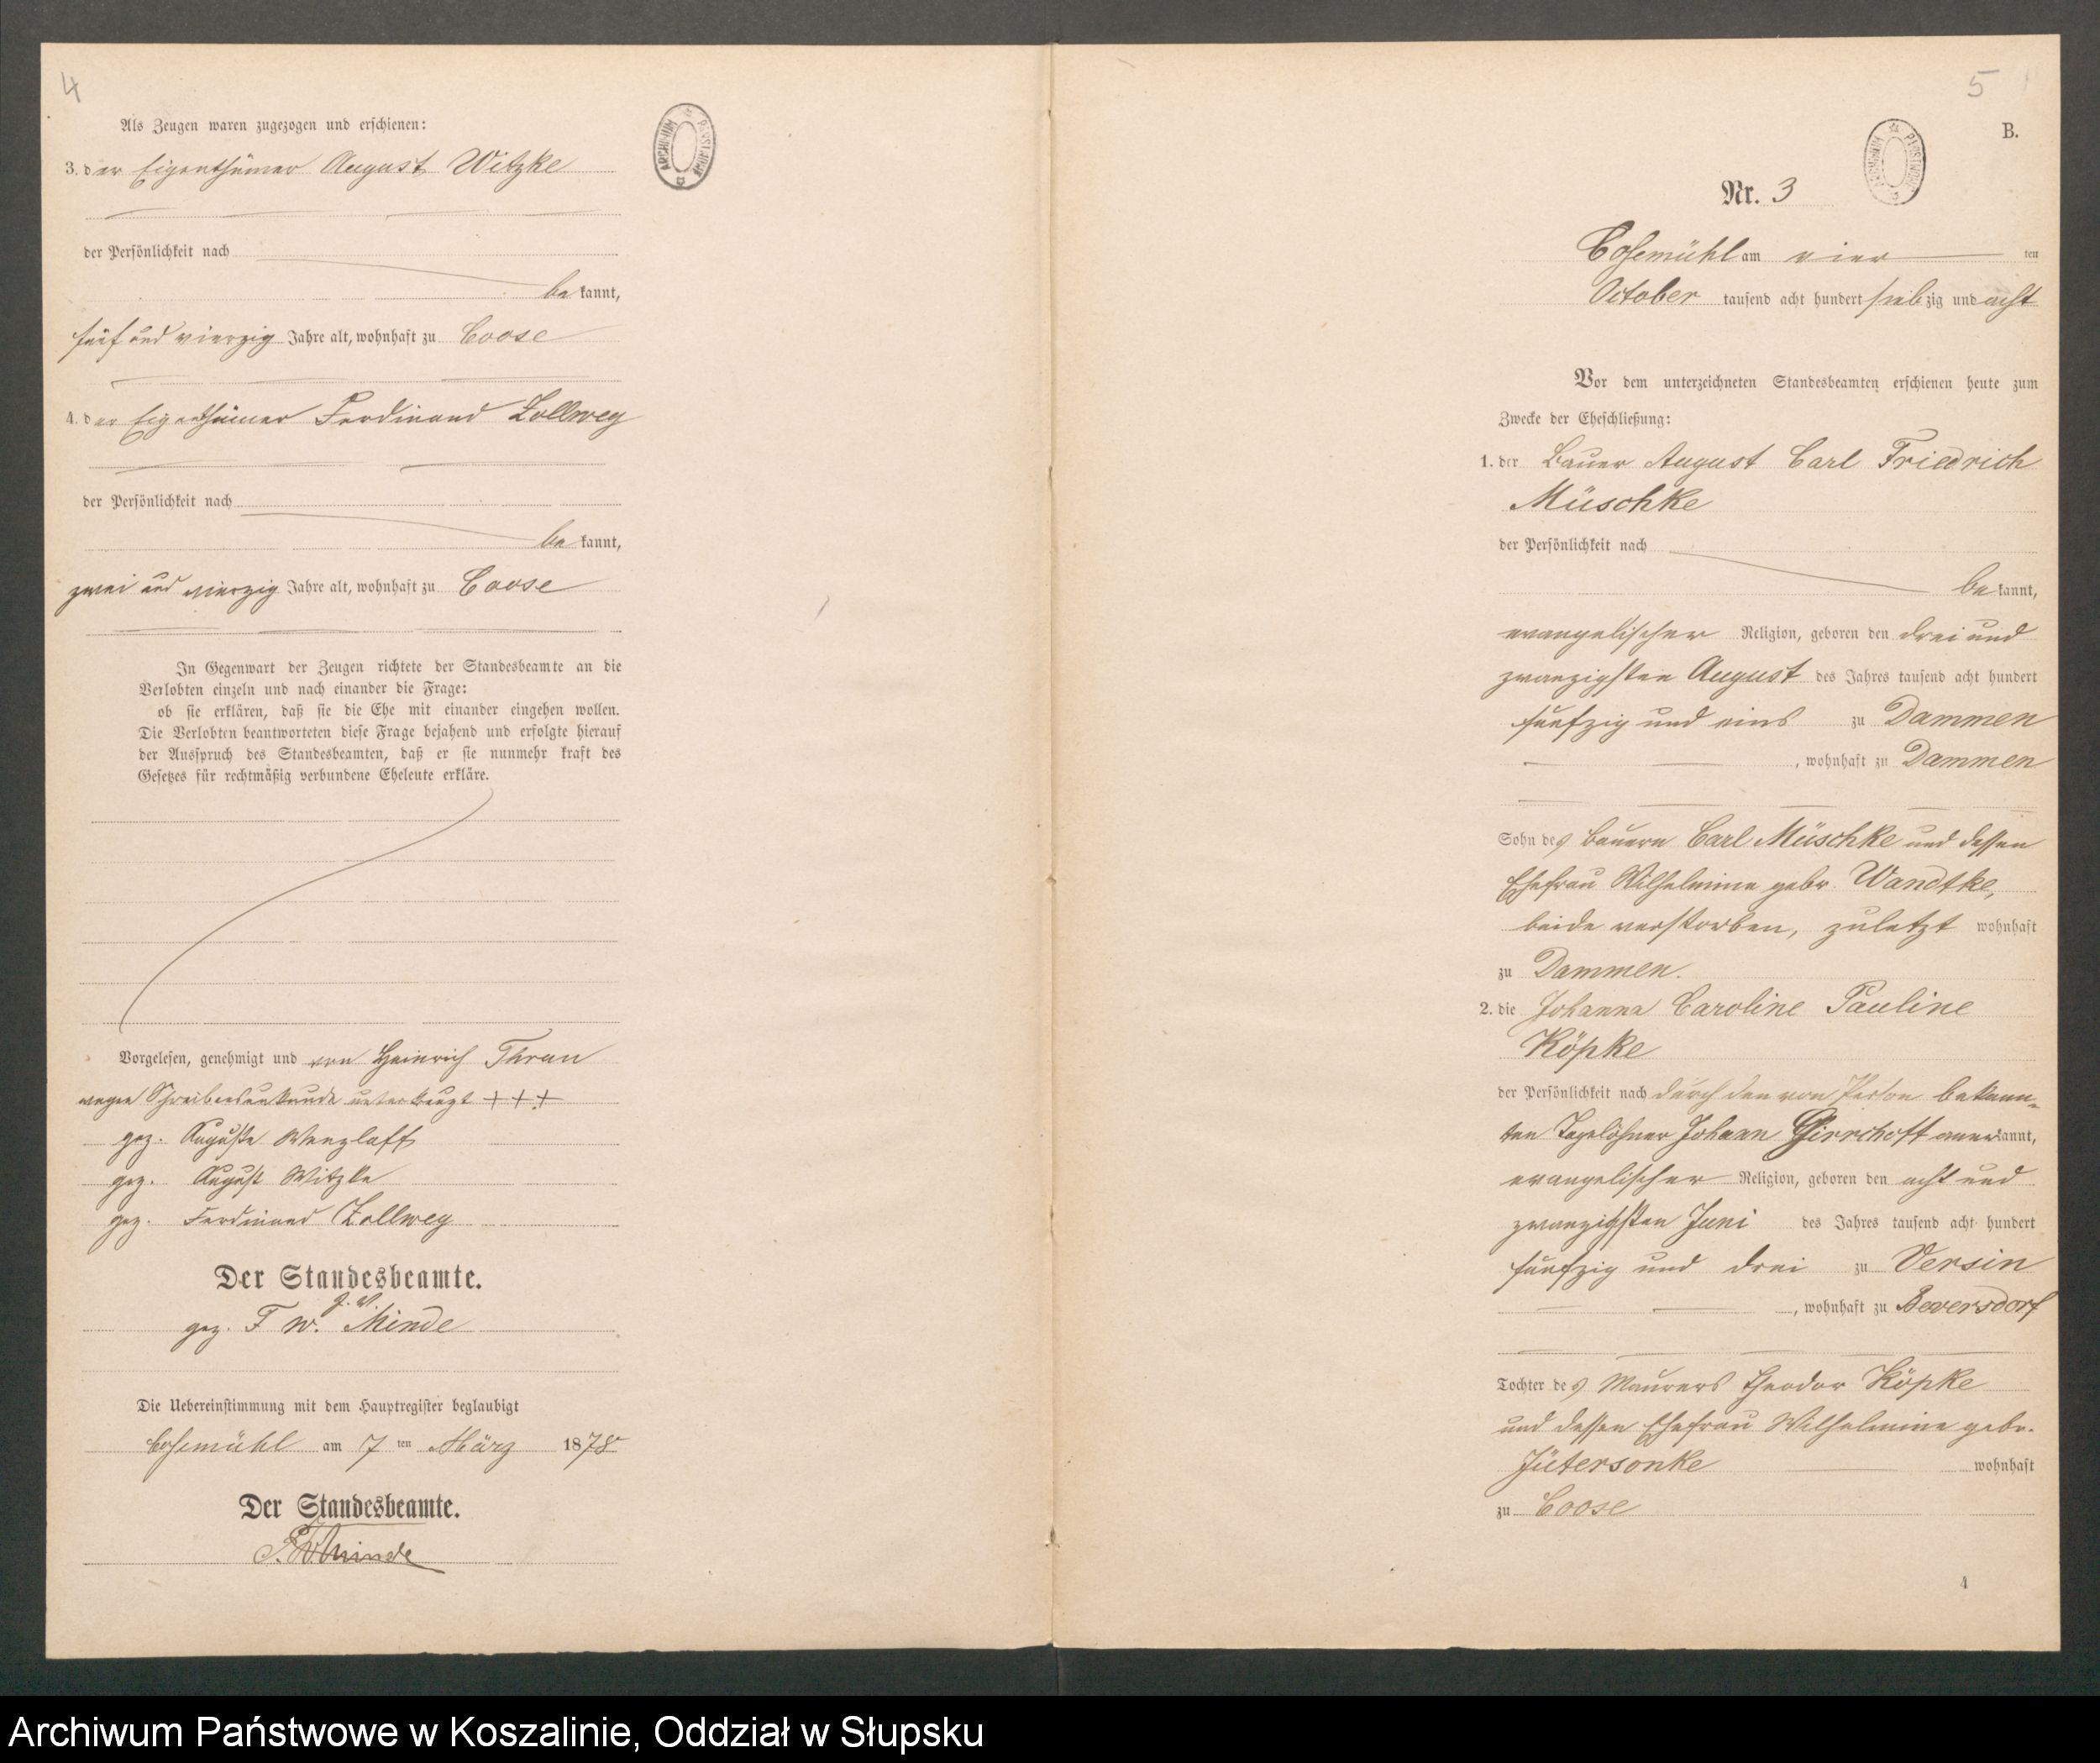 4
Als Zeugen waren zugezogen und erschienen:
3. der Eigenthümer August Witzke
der Persönlichkeit nach
bekannt,
fünf und vierzig Jahre alt, wohnhaft zu Coose
4. der Eigenthümer Ferdinand Zollweg
der Persönlichkeit nach
bekannt,
zwei und vierzig Jahre alt, wohnhaft zu Coose
In Gegenwart der Zeugen richtete der Standesbeamte an die
Verlobten einzeln und nach einander die Frage:
ob sie erklären, daß sie die Ehe mit einander eingehen wollen.
Die Verlobten beantworteten diese Frage bejahend und erfolgte hierauf
der Ausspruch des Standesbeamten, daß er sie nunmehr kraft des
Gesetzes für rechtmäßig verbundene Eheleute erkläre.
Vorgelesen, genehmigt und von Heinrich Thrun
wegen Schreibensunkunde unterkreuzt +++
gez. Auguste Wenzlaff
gez. August Witzke
gez. Ferdinand Zollweg
Der Standesbeamte.
gez. F. W. Minde
Die Uebereinstimmung mit dem Hauptregister beglaubigt
Cosemühl am 7 ten März 1878
Der Standesbeamte.
F. W. Minde
ARCHIWUM PAŃSTWOWE
5
B.
ARCHIWUM PAŃSTWOWE
Nr. 3
Cosemühl am vier ten
October tausend acht hundert siebzig und acht
Vor dem unterzeichneten Standesbeamten erschienen heute zum
Zwecke der Eheschließung:
1. der Bauer August Carl Friedrich
Müschke
der Persönlichkeit nach
bekannt,
evangelischer Religion, geboren den drei und
zwanzigsten August des Jahres tausend acht hundert
fünfzig und eins zu Dammen
, wohnhaft zu Dammen
Sohn des Bauern Carl Müschke und dessen
Ehefrau Wilhelmine gebr. Wandtke,
beide verstorben, zuletzt wohnhaft
zu Dammen.
2. die Johanna Caroline Pauline
Köpke
der Persönlichkeit nach durch den von Person bekann-
ten Tagelöhner Johann Girrchoft anerkannt,
evangelischer Religion, geboren den acht und
zwanzigsten Juni des Jahres tausend acht hundert
fünfzig und drei zu Versin
, wohnhaft zu Beversdorf
Tochter des Maurers Theodor Köpke
und dessen Ehefrau Wilhelmine gebr.
Jütersonke wohnhaft
zu Coose
4
Archiwum Państwowe w Koszalinie, Oddział w Słupsku